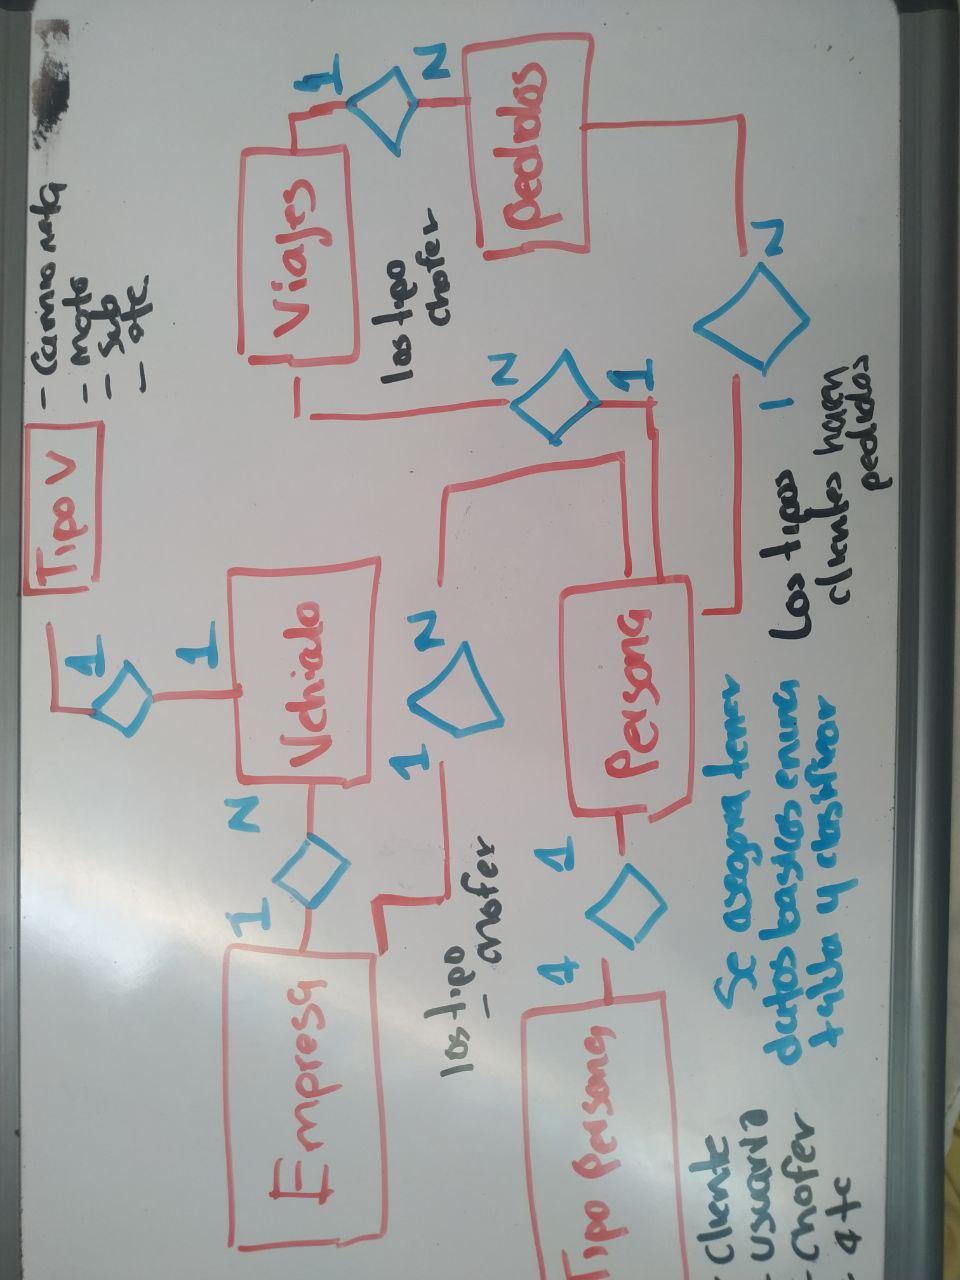 Tipo V
- Camioneta
- Moto
- Sub
- etc.
1
1
Empresa
1
N
Vehiculo
Viajes
1
los tipo
chofer
N
1
N
los tipo
- chofer
Pedidos
N
1
Tipo Persona
1
1
Persona
- cliente
- usuario
- chofer
- etc
Se asegura tener
datos basicos en una
tabla y clasificar
1
N
Los tipos
clientes hacen
pedidos